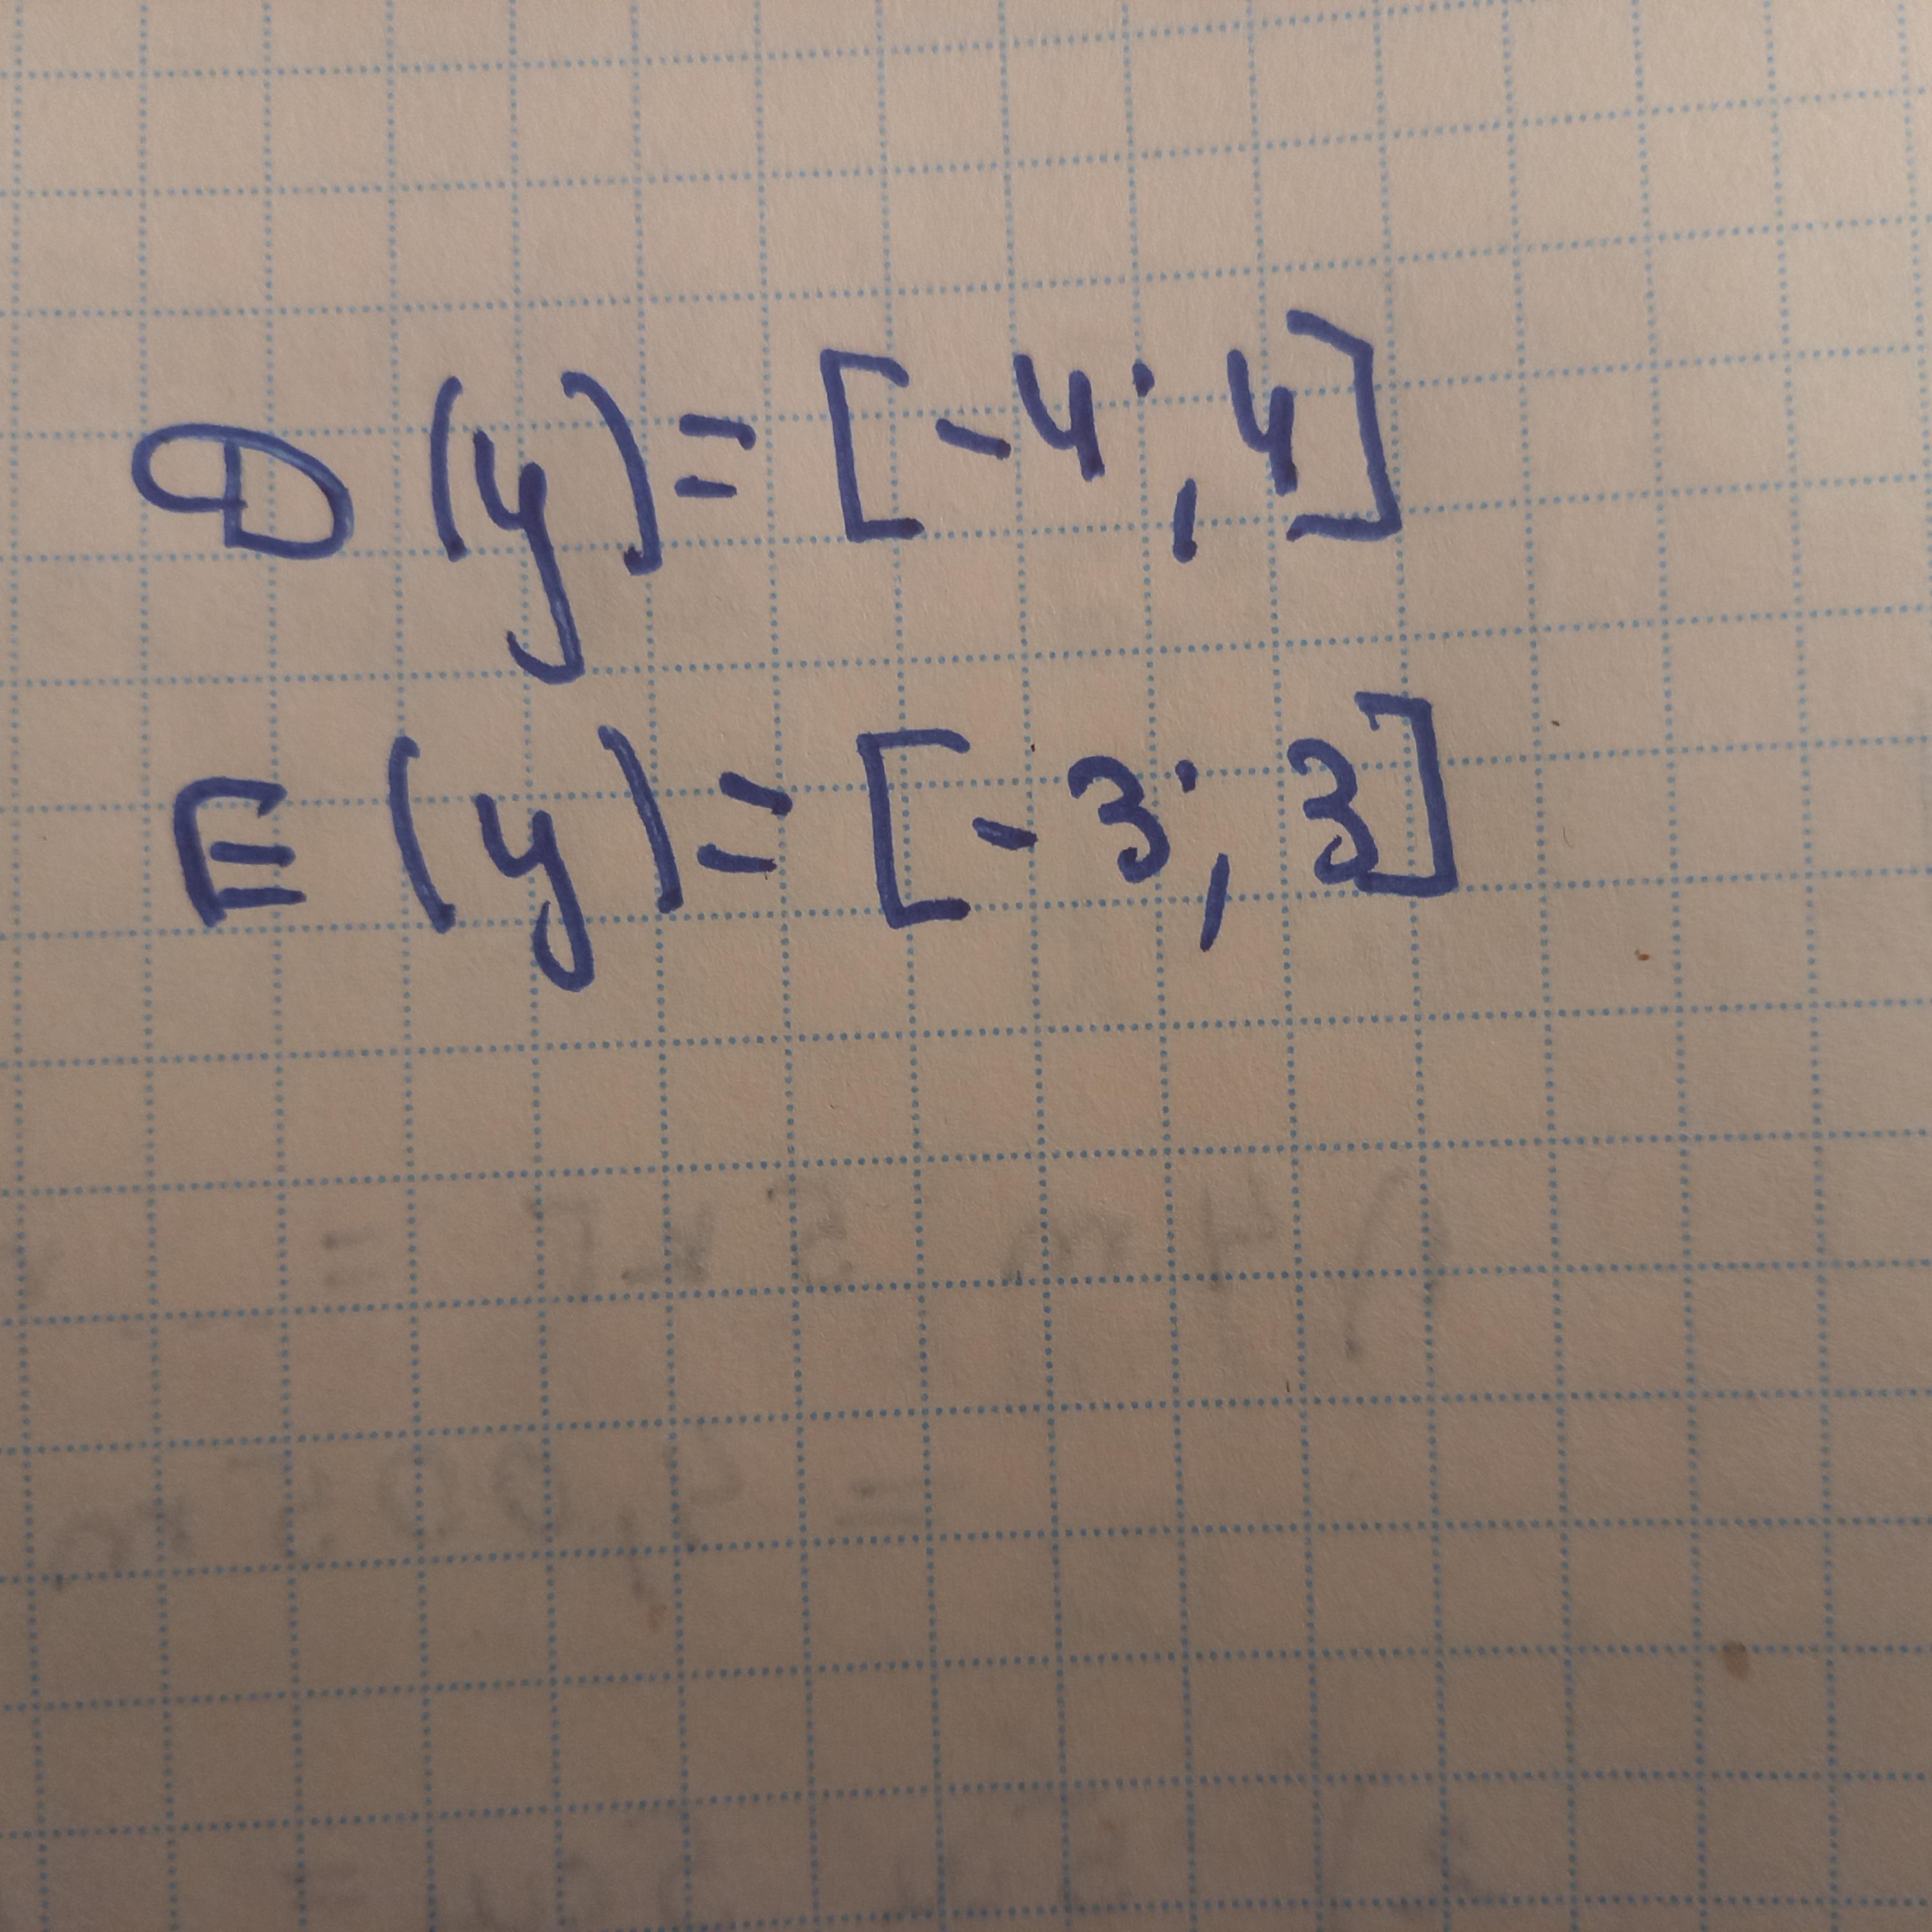 D (y) = [-4; 4]
E (y) = [-3; 3]